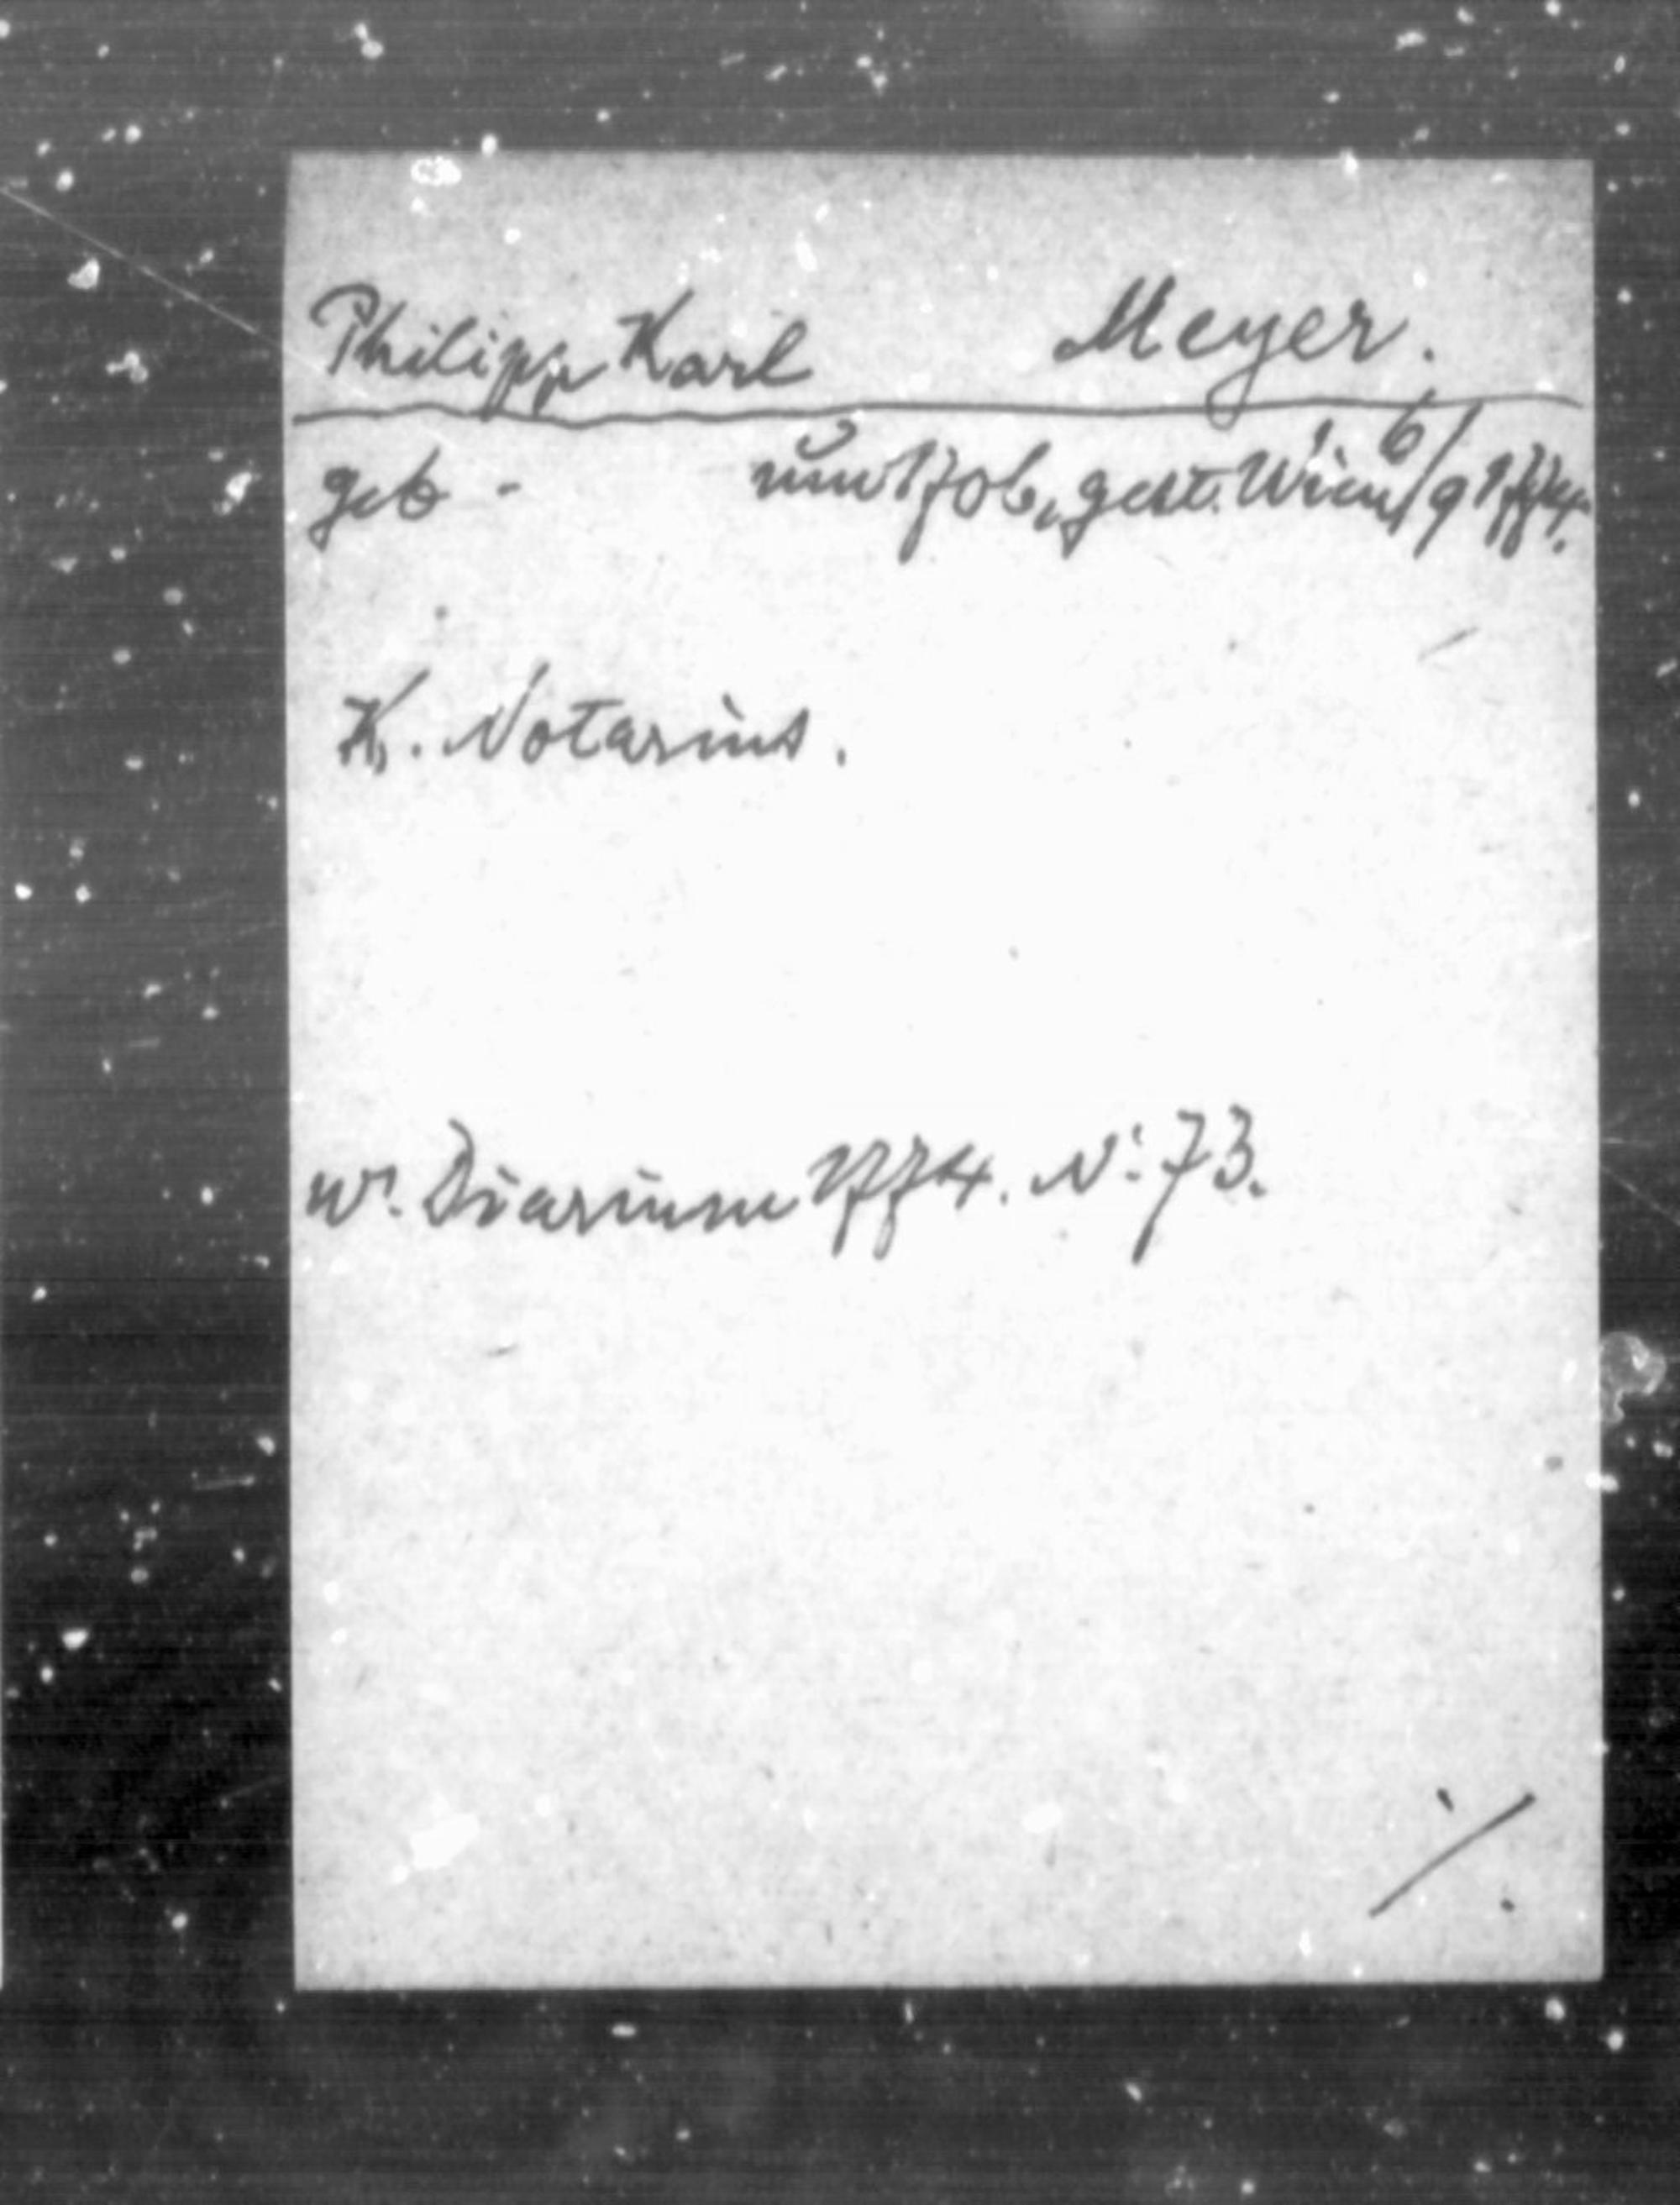 Philipp Karl Meyer.
geb - um 1706, gest. Wien 6/9 1774.
K. Notarius.
Wr. Diarium 1774. N: 73.
./.